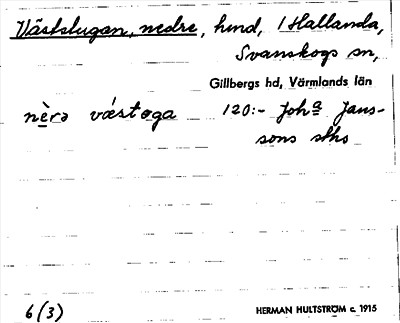 Västslugan, nedre, hmd, i Hallanda,
Svanskogs sn,
Gillbergs hd, Värmlands län
nèrə vǽstəga 120:- Joha Jans-
sons sths
6(3) HERMAN HULTSTRÖM c. 1915